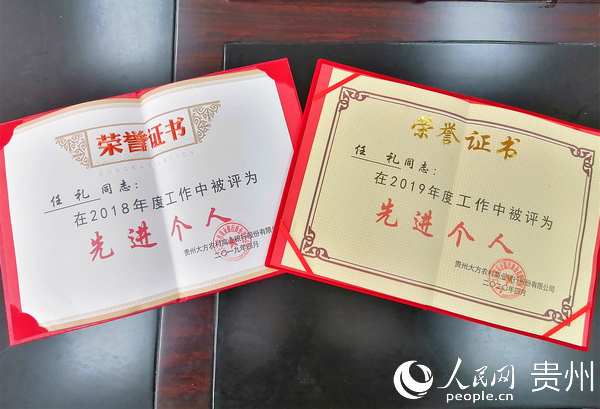 荣誉证书
CONGRATULATION
任 礼 同志：
在2018年度工作中被评为
先进个人
贵州大方农村商业银行股份有限公司
二〇一九年四月
荣誉证书
任 礼 同志：
在2019年度工作中被评为
先进个人
贵州大方农村商业银行股份有限公司
二〇二〇年四月
人民网 贵州
people.cn